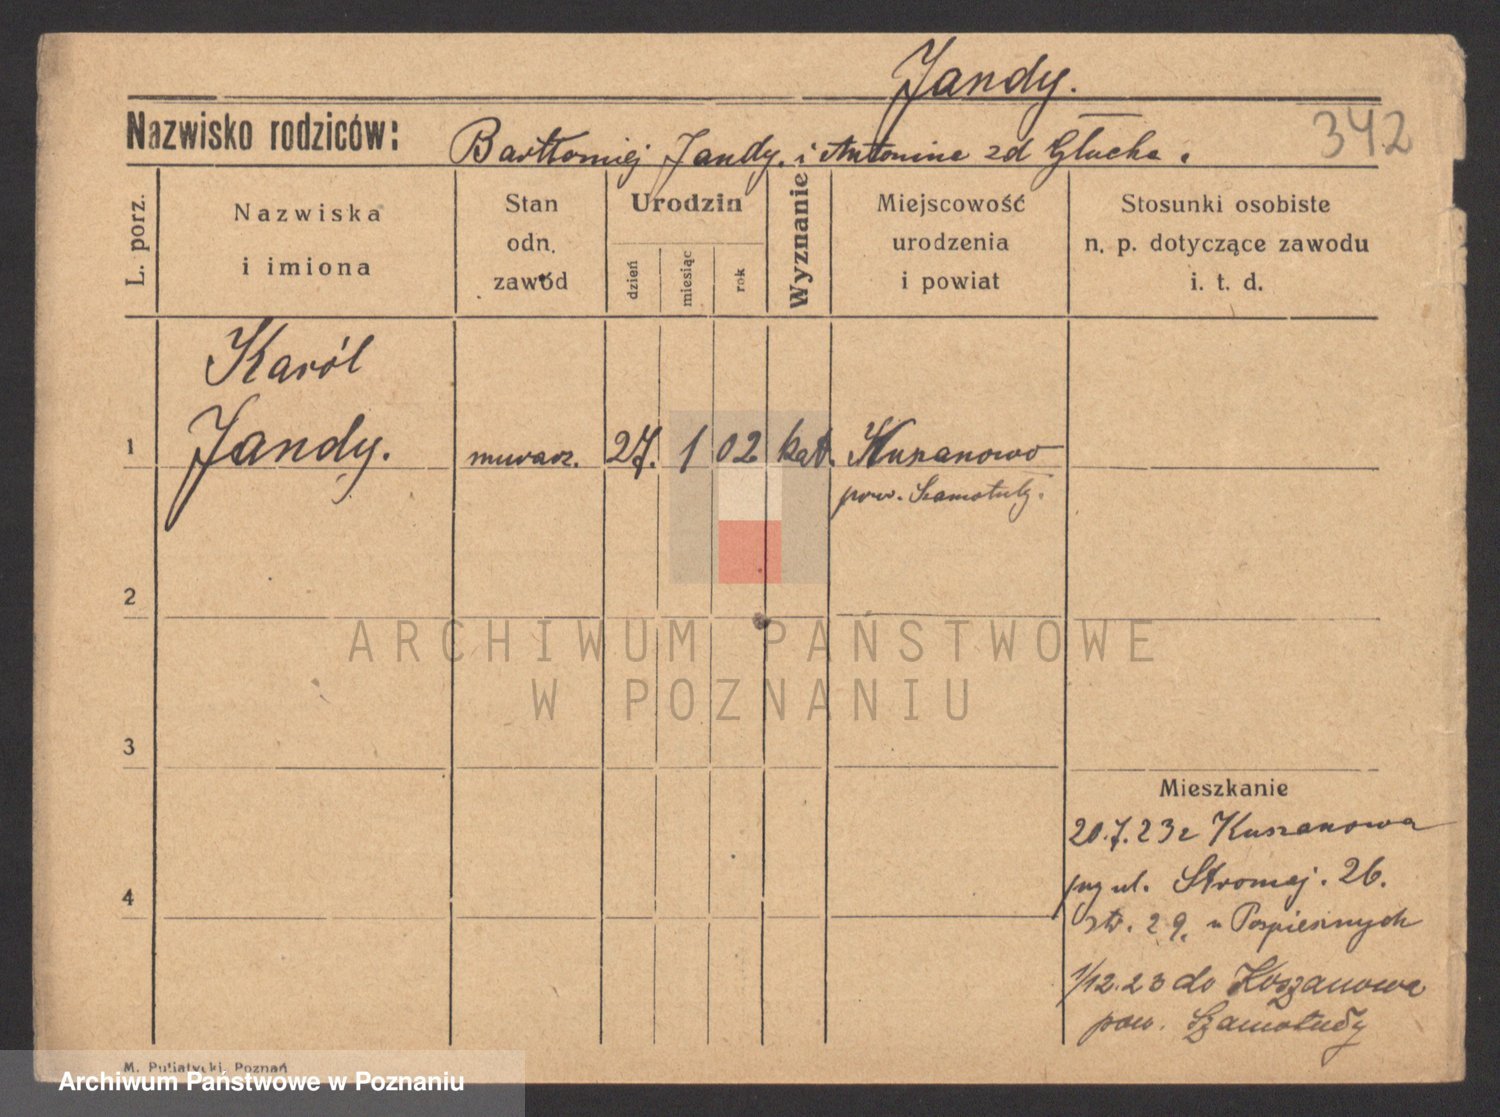 Jandy.
342
Nazwisko rodziców:
Bartłomiej Jandy. i Antonina zd Głucha.
L. porz.
Nazwiska
i imiona
Stan
odn.
zawód
Urodzin
dzień
miesiąc
rok
Wyznanie
Miejscowość
urodzenia
i powiat
Stosunki osobiste
n. p. dotyczące zawodu
i. t. d.
Karól
1 Jandy. murarz. 27. 1 02 kat. Kuszanowo
pow. Szamotuły.
2
ARCHIWUM PAŃSTWOWE
W POZNANIU
3
Mieszkanie
20.7.23 z Kuszanowa
ul. Stromej. 26.
str. 29. u Pospiesznych
4
1/12.23 do Koszanowa
pow. Szamotuły
M. Putiatycki, Poznań
Archiwum Państwowe w Poznaniu